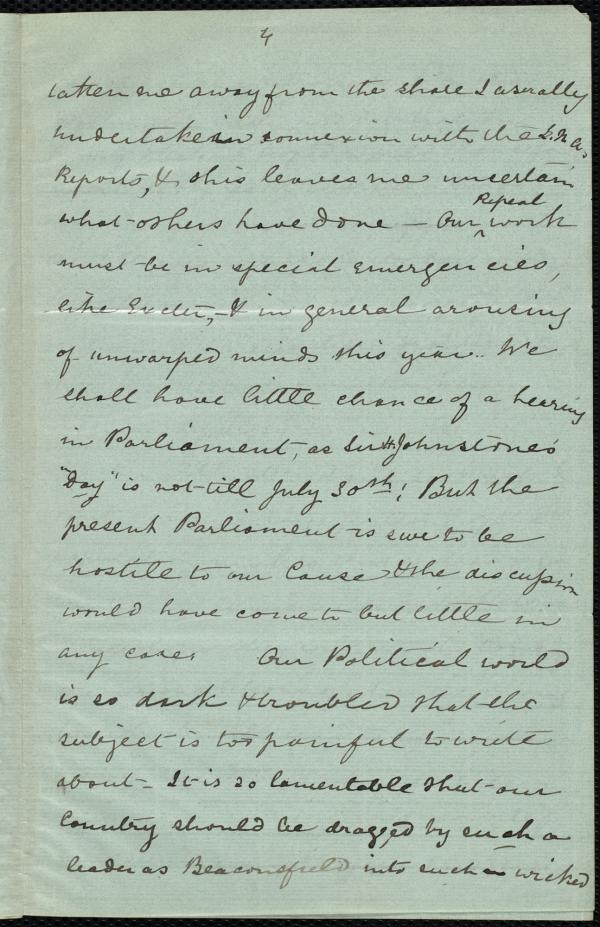 4
taken me away from the share I usually
undertake in connexion with the L.N.A.
Reports, & this leaves me uncertain
what others have done — Our Repeal work
must be in special emergencies,
like Exeter, & in general arousing
of unwarped minds this year. We
shall have little chance of a hearing
in Parliament, as Sir H. Johnstone's
"Day" is not till July 30th! But the
present Parliament is sure to be
hostile to our Cause & the discussion
would have come to but little in
any case. Our Political world
is so dark & troubled that the
subject is too painful to write
about - It is so lamentable that our
Country should be dragged by such a
leader as Beaconsfield into such a wicked